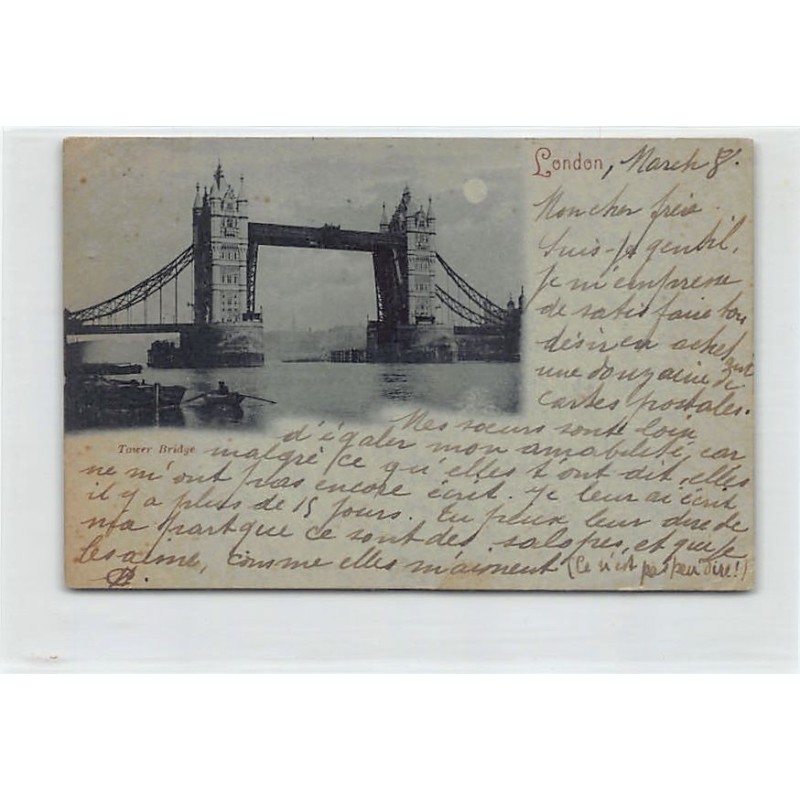 London, March 8.
Mon cher frère.
Suis-je gentil,
je m'empresse
de satisfaire ton
désir en achetant
une douzaine de
cartes postales.
Mes sœurs sont loin
Tower Bridge
d'égaler mon amabilité, car
malgré ce qu'elles t'ont dit, elles
ne m'ont pas encore écrit. Je leur ai écrit
il y a plus de 15 jours. Tu peux leur dire de
ma part que ce sont des salopes, et que je
les aime, comme elles m'aiment (Ce n'est pas peu dire!)